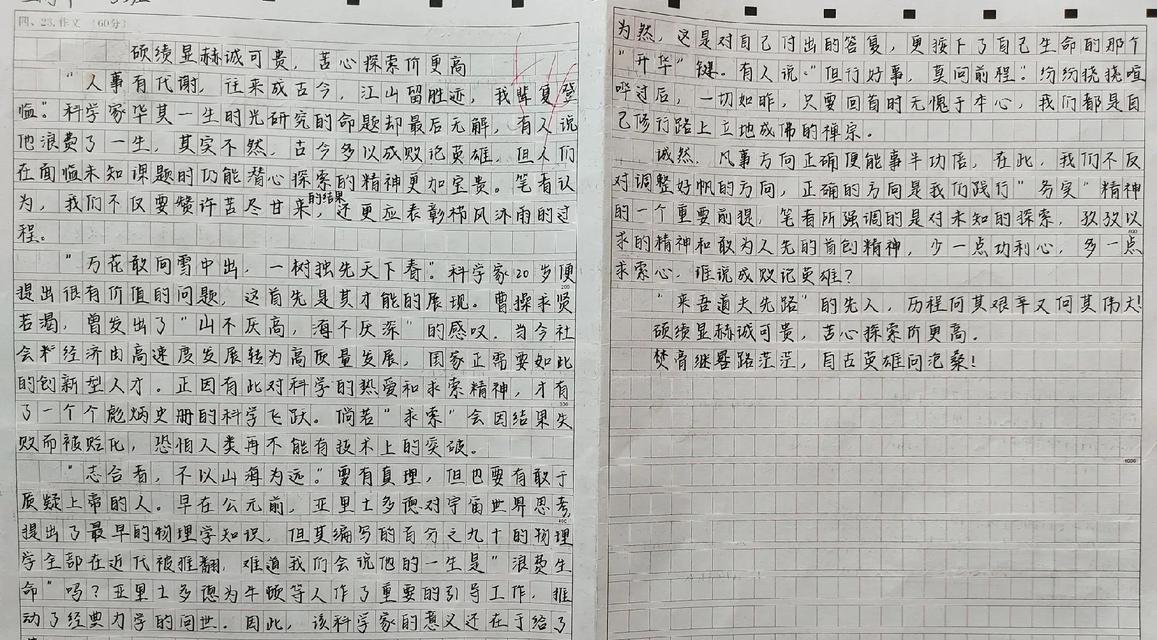 四、23.作文（60分）
硕绩显赫诚可贵，苦心探索价更高
“人事有代谢，往来成古今，江山留胜迹，我辈复登
临。”科学家毕其一生时光研究的命题却最后无解，有人说
他浪费了一生，其实不然，古今多以成败论英雄，但人们
在面临未知课题时仍能潜心探索的精神更加宝贵。笔者认
为，我们不仅要赞许苦尽甘来的结果，还更应表彰栉风沐雨的过
程。
“万花敢向雪中出，一树独先天下春”。科学家20岁便
提出很有价值的问题，这首先是其才能的展现。曹操求贤
若渴，曾发出了“山不厌高，海不厌深”的感叹，当今社
会经济由高速度发展转为高质量发展，国家正需要如此
的创新型人才。正因有此对科学的热爱和求索精神，才有
了一个个彪炳史册的科学飞跃。倘若“求索”会因结果失
败而被贬化，恐怕人类再不能有技术上的突破。
“志合者，不以山海为远。”要有真理，但也要有敢于
质疑上帝的人。早在公元前，亚里士多德对宇宙世界思考，
提出了最早的物理学知识，但其编写的百分之九十的物理
学全部在近代被推翻，难道我们会说他的一生是“浪费生
命”吗？亚里士多德为牛顿等人作了重要的引导工作，推
动了经典力学的问世。因此，该科学家的意义还在于给了
为然，这是对自己付出的答复，更按下了自己生命的那个
“升华”键。有人说：“但行好事，莫问前程。”纷纷挠挠喧
哗过后，一切如昨，只要回首时无愧于本心，我们都是自
己修行路上立地成佛的禅宗。
诚然，凡事方向正确便能事半功倍，在此，我们不反
对调整好帆的方向，正确的方向是我们践行“务实”精神
的一个重要前提，笔者所强调的是对未知的探索，孜孜以
求的精神和敢为人先的首创精神，少一点功利心，多一点
求索心，谁说成败论英雄？
“来吾道夫先路”的先人，历程何其艰辛又何其伟大！
硕绩显赫诚可贵，苦心探索价更高。
焚膏继晷路茫茫，自古英雄问沧桑！